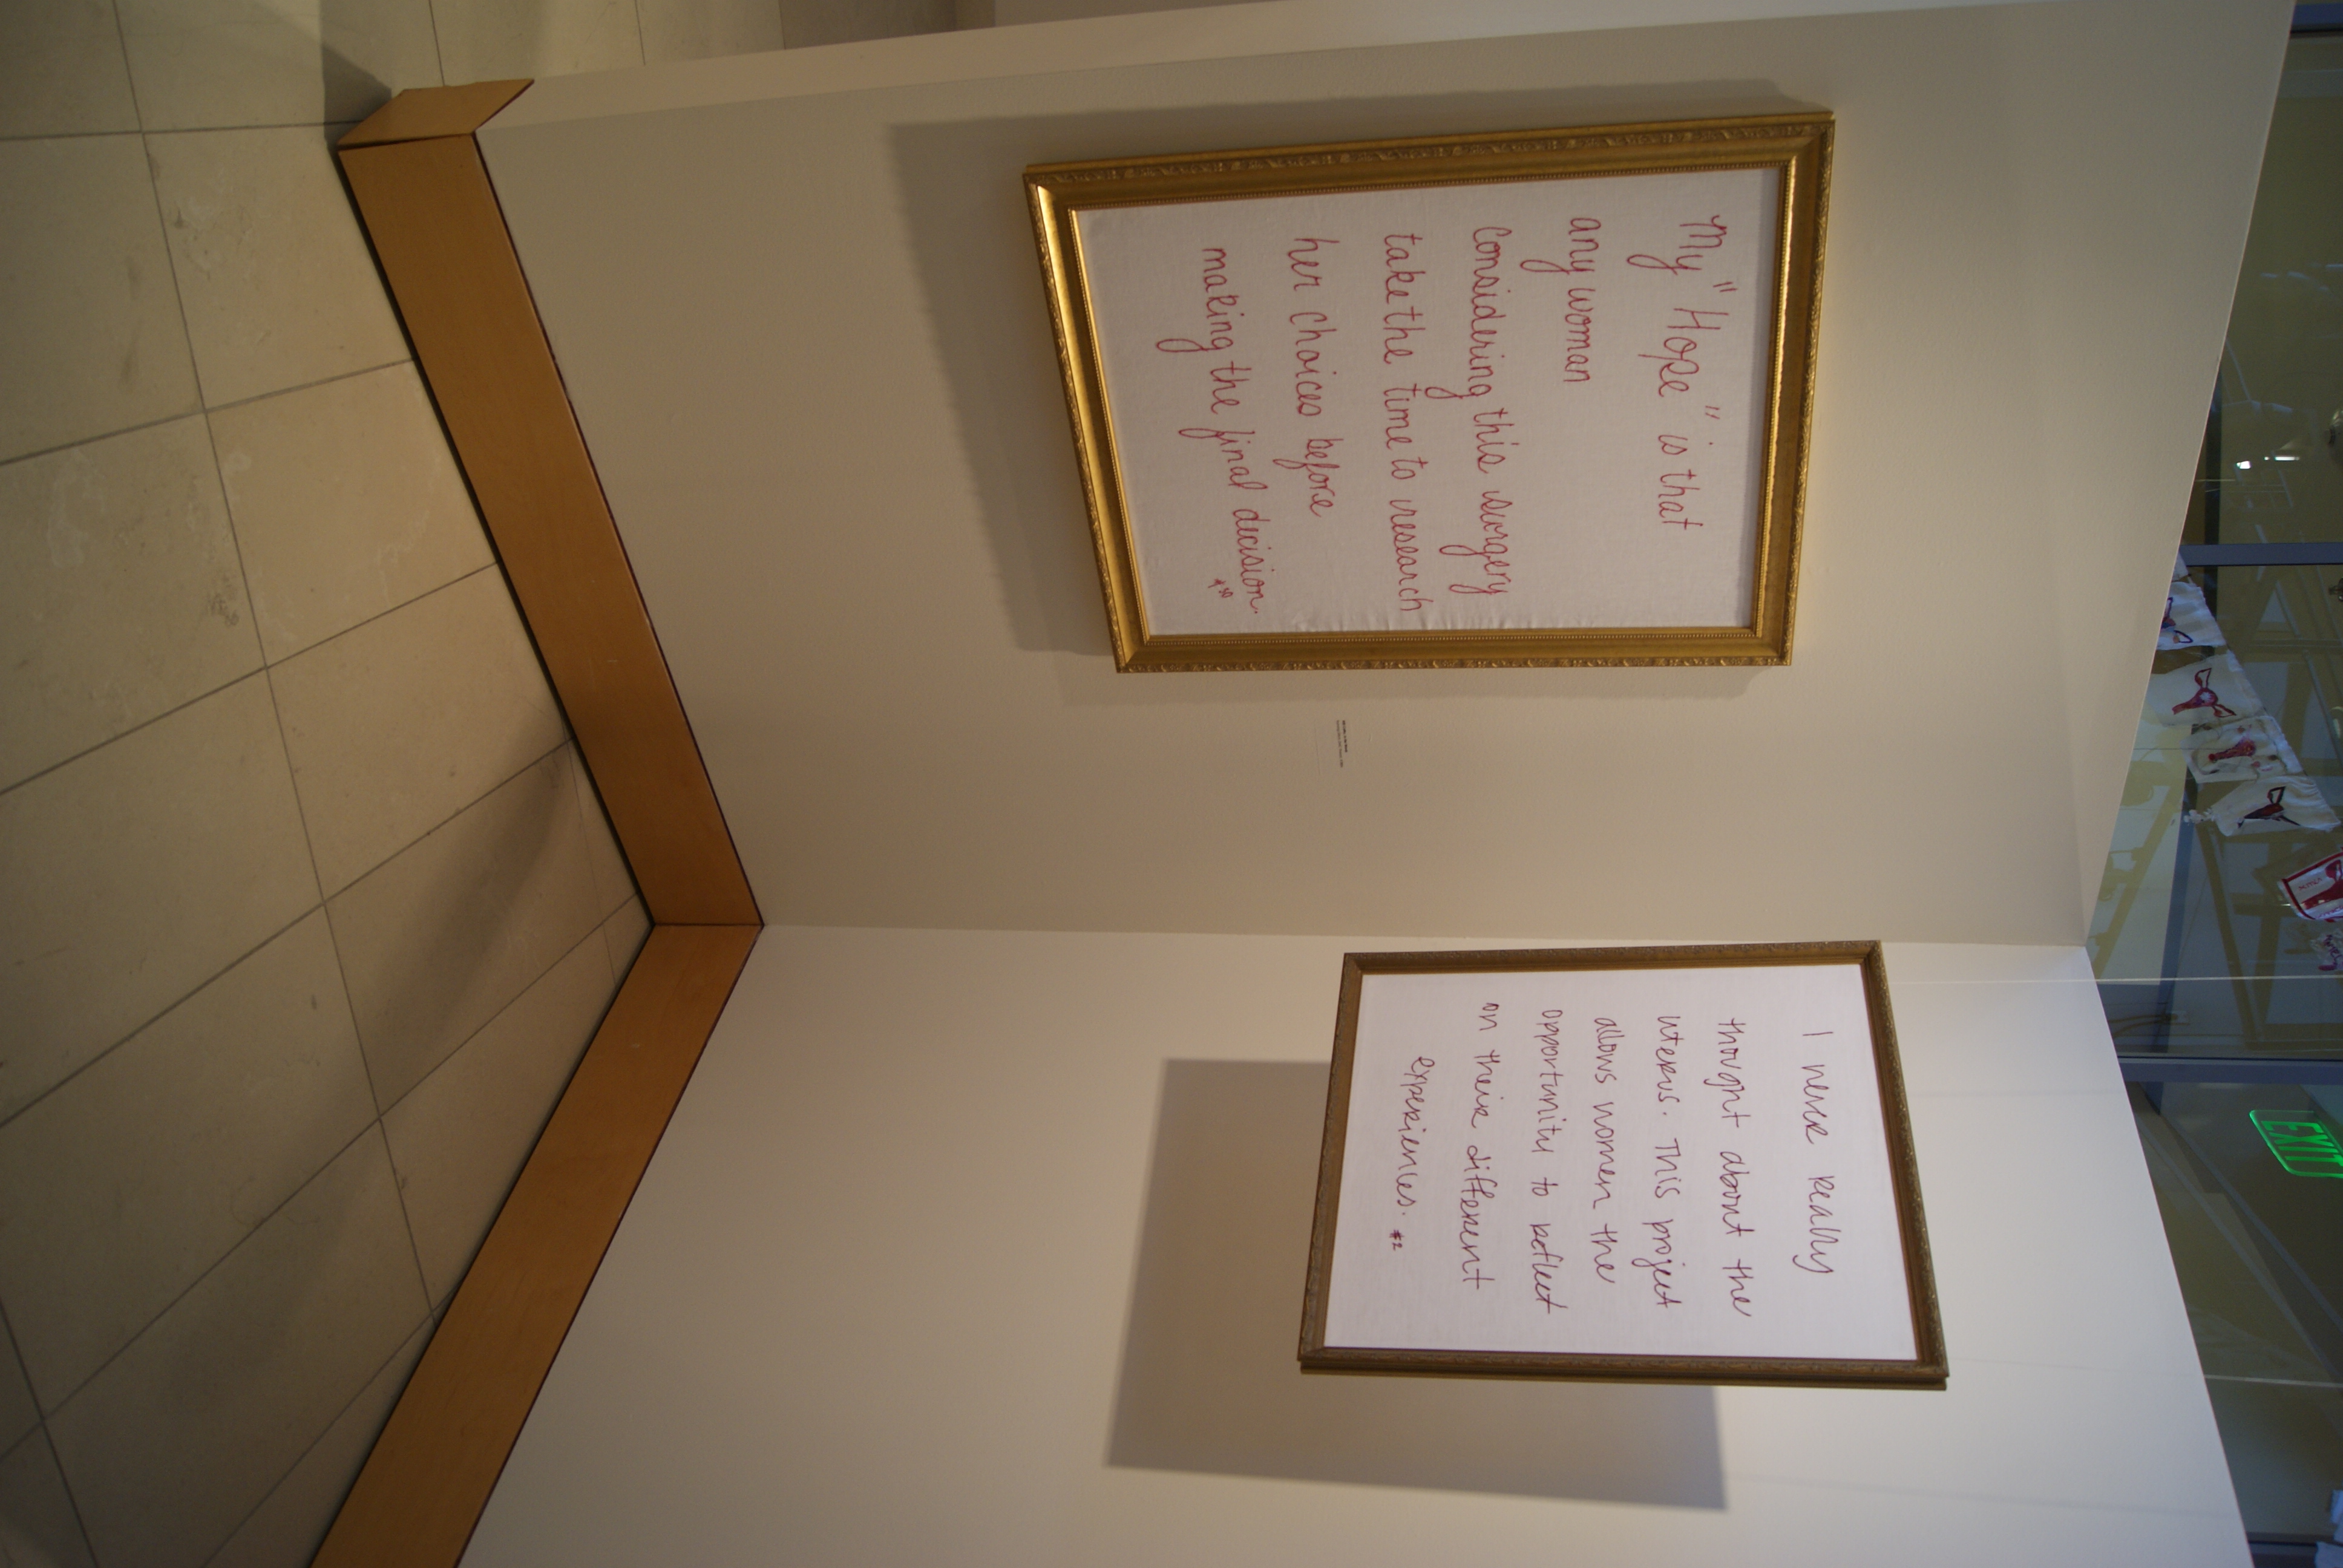 My "Hope" is that
any woman
considering this surgery
take the time to research
her choices before
making the final decision.
I never really
thought about the
uterus. This project
allows women the
opportunity to reflect
on their different
experiences. #2
EXIT